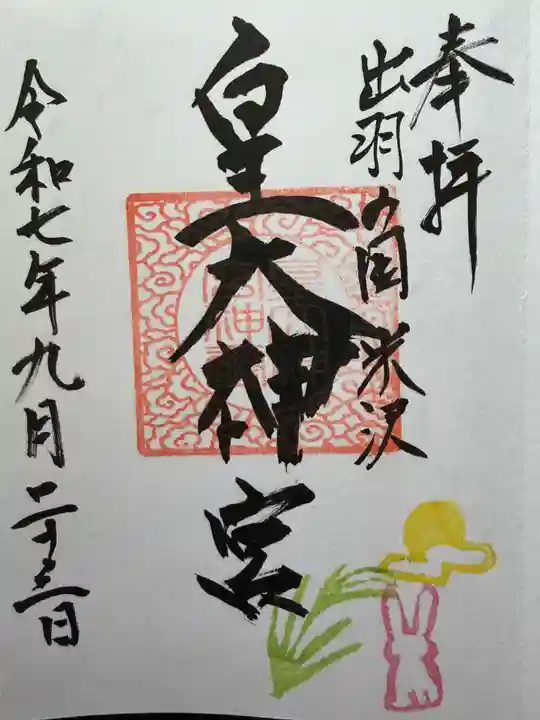 奉拝
出羽の国 米沢
皇大神宮
令和七年九月二十三日